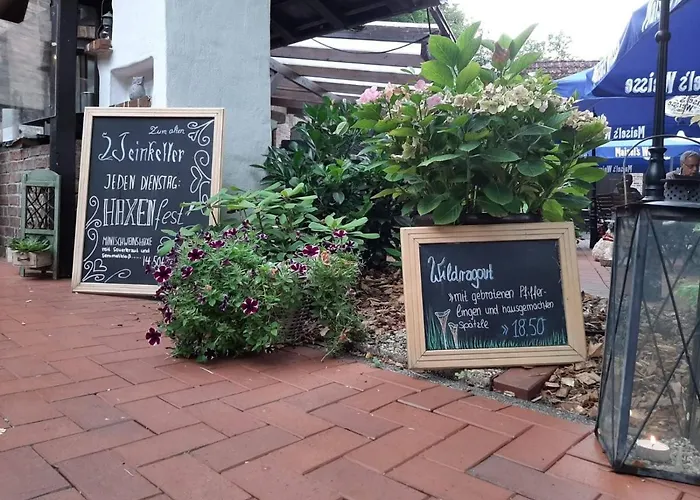 Zum alten
Weinkeller
JEDEN DIENSTAG:
HAXENfest
MINISCHWEINSHAXE
mit Sauerkraut und
Semmelkloß
14.50
Wildragout
»mit gebratenen Pfiffer-
lingen und hausgemachten
Spätzle » 18.50
Maisel's Weisse
Maisel's Weisse